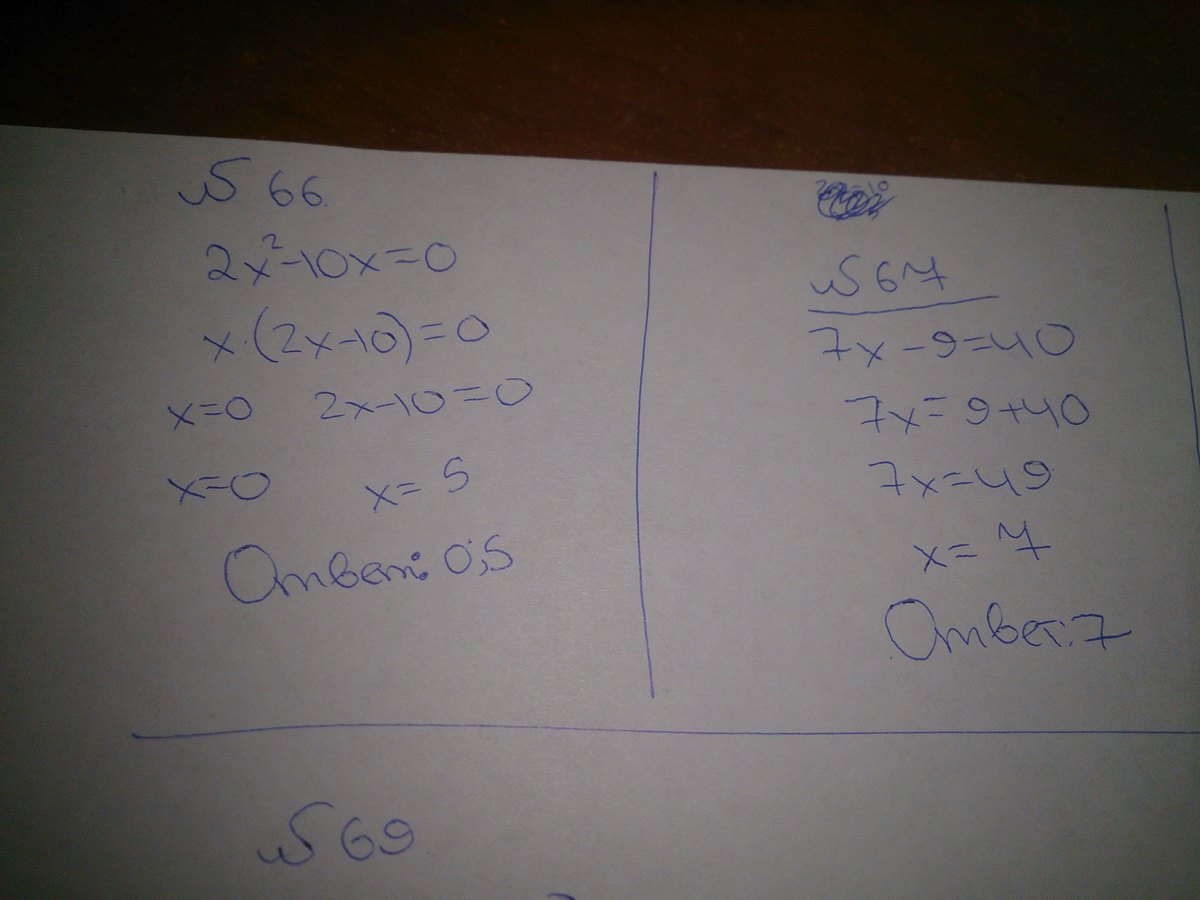 № 66.
2x²-10x=0
x·(2x-10)=0
x=0 2x-10=0
x=0 x= 5
Ответ: 0;5
№ 67
7x-9=40
7x= 9+40
7x=49
x= 7
Ответ: 7
№ 69